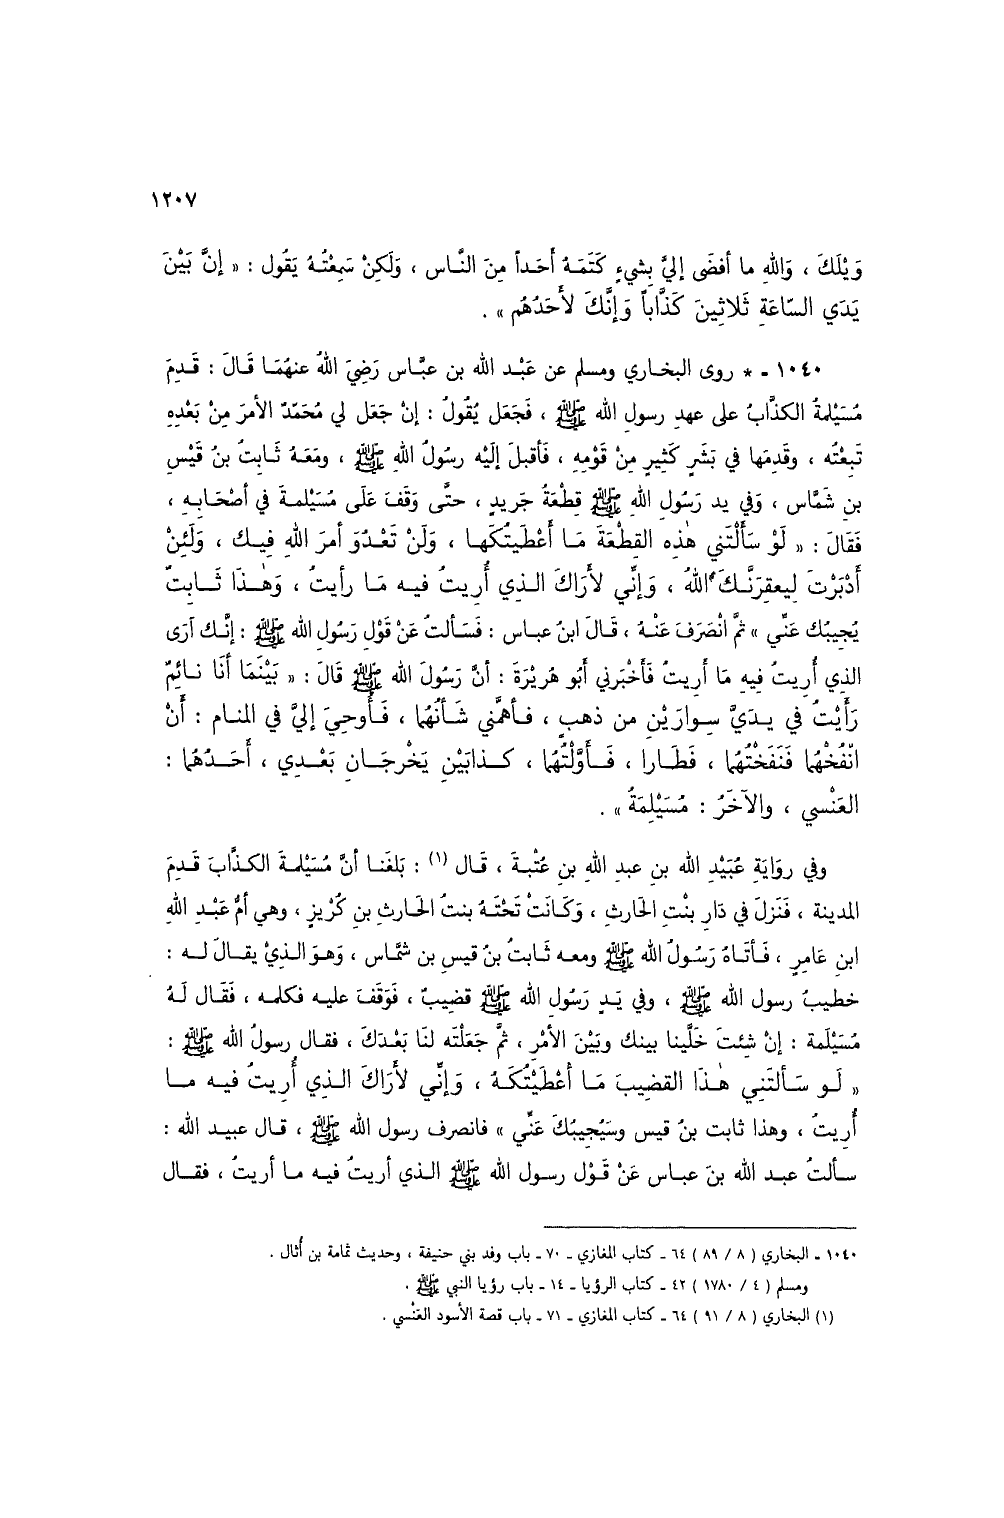 ١٢٠٧
وَيْلَكَ ، وَاللهِ ما أفضَى إليَّ بِشيءٍ كَتَمَهُ أَحَداً مِنَ النَّاس ، وَلَكِنْ سَمِعْتُهُ يَقُول : « إنَّ بَيْنَ
يَدَي السّاعَةِ ثَلاثِينَ كَذَّاباً وَإِنَّكَ لأَحَدُهُم » .
١٠٤٠ - * روى البخاري ومسلم عن عَبْد الله بن عبَّاس رَضِيَ اللهُ عنهُمَا قَالَ : قَدِمَ
مُسَيْلِمةُ الكذَّابُ على عهدِ رسولِ الله ﷺ ، فَجَعَل يُقُولُ : إنْ جَعَل لي مُحَمّدٌ الأمرَ مِنْ بَعْدِهِ
تَبِعْتُه ، وقَدِمَها في بَشَرٍ كَثيرٍ مِنْ قَوْمِهِ ، فَأقبلَ إلَيْه رسُولُ اللهِ ﷺ ، ومَعَهُ ثَابِتُ بنُ قَيْسِ
بن شَمَّاس ، وَفي يد رَسُول الله ﷺ قِطْعَةُ جَريدٍ ، حتَّى وَقَفَ عَلَى مُسَيْلمةَ في أصْحَابِهِ ،
فَقَالَ : « لَوْ سَأَلْتَني هٰذِه القِطْعَةَ مَا أَعْطَيتُكَها ، وَلَنْ تَعْدُوَ أمرَ اللهِ فِيك ، وَلَئِنْ
أَدْبَرْتَ لِيعقِرَنَّكَ اللهُ ، وَإنِّي لأرَاكَ الذي أُريتُ فيه مَا رأيتُ ، وَهٰذَا ثَابتٌ
يُجيبُك عَنِّي » ثمَّ انْصَرَفَ عَنْهُ ، قَالَ ابنُ عباس : فَسَألتُ عَنْ قَوْلِ رَسُولِ الله ﷺ : إنَّك أرَى
الذِي أُريتُ فِيهِ مَا أَريتُ فَأخْبَرني أَبُو هُريْرَةَ : أنَّ رَسُولَ الله ﷺ قالَ : « بَيْنَمَا أَنَا نائِمٌ
رَأَيْتُ في يدَيَّ سِوارَيْنِ من ذهبٍ ، فأهمَّني شَأنُهُما ، فَأُوحِيَ إليَّ في المنام : أَنْ
انْفُخْهُما فَنَفَخْتُهُما ، فَطَارا ، فَأَوَّلْتُهُما ، كذابَيْنِ يَخْرجَانِ بَعْدي ، أَحَدُهُما :
العَنْسي ، والآخَرُ : مُسَيْلِمَةُ » .
وفي روَايَةِ عُبَيْدِ الله بن عبد الله بنِ عُتْبةَ ، قَال (١) : بَلغَنا أنَّ مُسَيْلمةَ الكذَّابَ قَدِمَ
المدينة ، فَنَزلَ في دَارِ بنْتِ الحَارِثِ ، وَكَانَتْ تَحْتَهُ بنتُ الحَارثِ بنِ كُرَيْزٍ ، وهي أمُّ عَبْدِ اللهِ
ابن عَامِرٍ ، فَأتَاهُ رَسُولُ الله ﷺ ومعه ثَابتُ بنُ قيسِ بن شمَّاس ، وَهوَ الذيْ يقالَ له :
خطيبُ رسول الله ﷺ ، وفي يَدِ رَسُولِ الله ﷺ قضيبٌ ، فَوَقَفَ عليه فكلمه ، فَقَال لَهُ
مُسَيْلَمة : إنْ شئتَ خَلَّينا بينك وبَيْنَ الأمْرِ ، ثمَّ جَعَلْتَه لنَا بَعْدَكَ ، فقال رسولُ الله ﷺ :
« لَو سَألتَنِي هٰذَا القضيبَ مَا أَعْطَيْتُكَهُ ، وَإنِّي لأرَاكَ الذي أُريتُ فيه ما
أُريتُ ، وهذا ثابت بنُ قيس وسَيُجيبُكَ عَنِّي » فانصرف رسول الله ﷺ ، قال عبيد الله :
سألتُ عبد الله بنَ عباس عَنْ قَوْل رسول الله ﷺ الذي أريتُ فيه ما أريتُ ، فقال
١٠٤٠ - البخاري ( ٨ / ٨٩ ) ٦٤ - كتاب المغازي - ٧٠ - باب وفد بني حنيفة ، وحديث ثمامة بن أُثال .
ومسلم ( ٤ / ١٧٨٠ ) ٤٢ - كتاب الرؤيا - ١٤ - باب رؤيا النبي ﷺ .
(١) البخاري ( ٨ / ٩١ ) ٦٤ - كتاب المغازي - ٧١ - باب قصة الأسود العَنْسي .